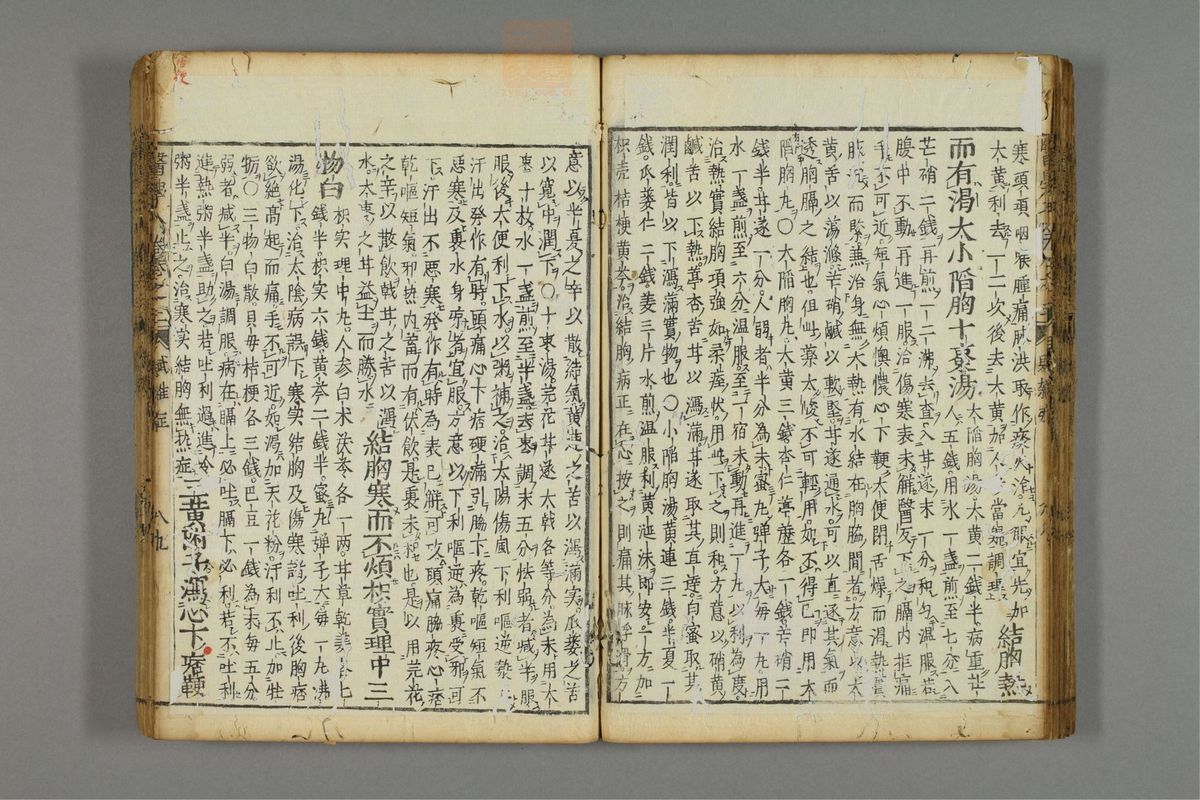 寒頭項咽喉腫痛脉洪取作痰火治凡服宜先加
大黃利去一二次後去大黃加人參當歸調理
結胸熱
而有渴大小陷胸十棗湯
大陷胸湯大黃二錢半病重
芒硝二錢再煎一二沸去查入甘遂末一分和勻溫服若
人五錢用水一盞煎至七分入
腹中不動再進一服治傷寒表未解醫反下之膈內拒痛
手不可近短氣心煩懊憹心下鞕大便閉舌燥而渴
脉沉而無治身無大熱有水結在胸脇間者方意以大
黃苦以蕩滌芒硝鹹以軟堅甘遂通水可以直遂其氣而
透胸膈之結也但此藥太峻不可輕用如不得已即用大
陷胸丸○大陷胸丸大黃三錢杏仁葶藶各一錢芒硝二
錢半甘遂一分人弱者半分為末蜜丸彈子大每一丸用
水一盞煎至六分溫服至一宿未動再進一丸以利為度
治熱實結胸項強如柔痓狀用此下之則和方意以硝黃
鹹苦以下熱葶杏苦甘以瀉滿甘遂取其直達白蜜取其
潤利皆以下瀉滿實物也○小陷胸湯黃連三錢半夏一
錢瓜蔞仁二錢姜三片水煎溫服利黃涎沫即安一方加
枳壳桔梗黃芩治結胸病正在心按之則痛其脉浮滑方
意以半夏之辛以散結氣黃連之苦以瀉滿實瓜蔞之苦
以寬中潤下○十棗湯芫花甘遂大戟各等分為末用大
棗十枚水一盞煎至半盞去棗調末五分怯弱者減半服
服後大便利下水以粥補之治太陽傷風下利嘔逆漐
汗出發作有時頭痛心下痞硬滿引脇下疼乾嘔短氣不
惡寒及裏水身涼者宜服方意以下利嘔逆為裏受邪可
下汗出不惡寒發作有時為表已解可攻頭痛脇疼心痞
乾嘔短氣邪熱內蓄而有伏飲是裏未和也是以用芫花
之辛以散飲戟甘之苦以瀉
水大棗之甘益土而勝水
結胸寒而不煩枳實理中三
物白
枳实理中丸人參白术茯苓各一兩甘草乾姜各七
錢半枳实六錢黃芩二錢半蜜丸彈子大每一丸沸
湯化下治太陰病誤下寒实結胸及傷寒諸吐利後胸痞
欲絕高起而痛手不可近如渴加天花粉汗利不止加牡
蛎○三物白散貝母桔梗各三錢巴豆一錢為末每五分
弱者減半白湯調服病在膈上必吐膈下必利若不吐利
進熱粥半盞助之若吐利過進冷
粥半盞止之治寒实結胸無熱症
三黃附子瀉心下痞鞕
醫學
八九